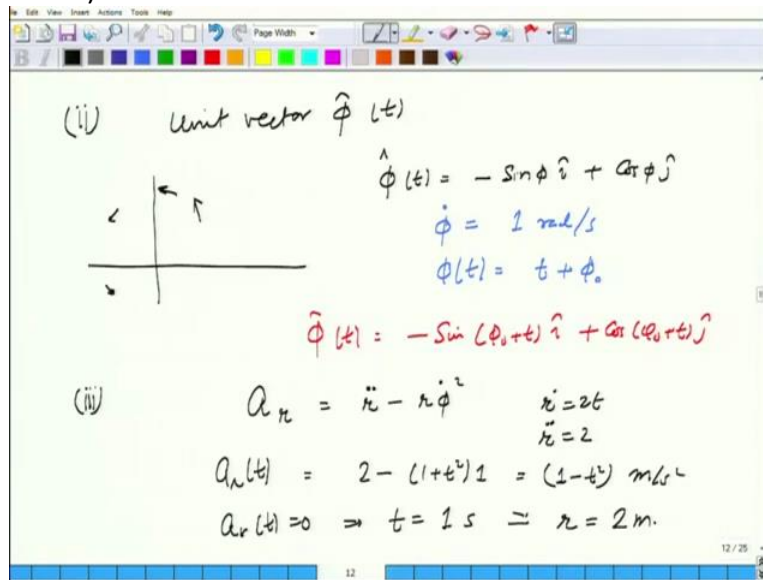 Edit View Insert Actions Tools Help
Page Width
B I
(ii) Unit vector φ̂ (t)
φ̂ (t) = - Sin φ î + Cos φ ĵ
φ̇ = 1 rad/s
φ(t) = t + φ₀
φ̂ (t) = - Sin (φ₀+t) î + Cos (φ₀+t) ĵ
(iii) a_r = r̈ - r φ̇² ṙ = 2t
r̈ = 2
a_r(t) = 2 - (1+t²) 1 = (1-t²) m/s²
a_r(t) = 0 ⇒ t = 1 s ≃ r = 2 m.
12 / 25
12